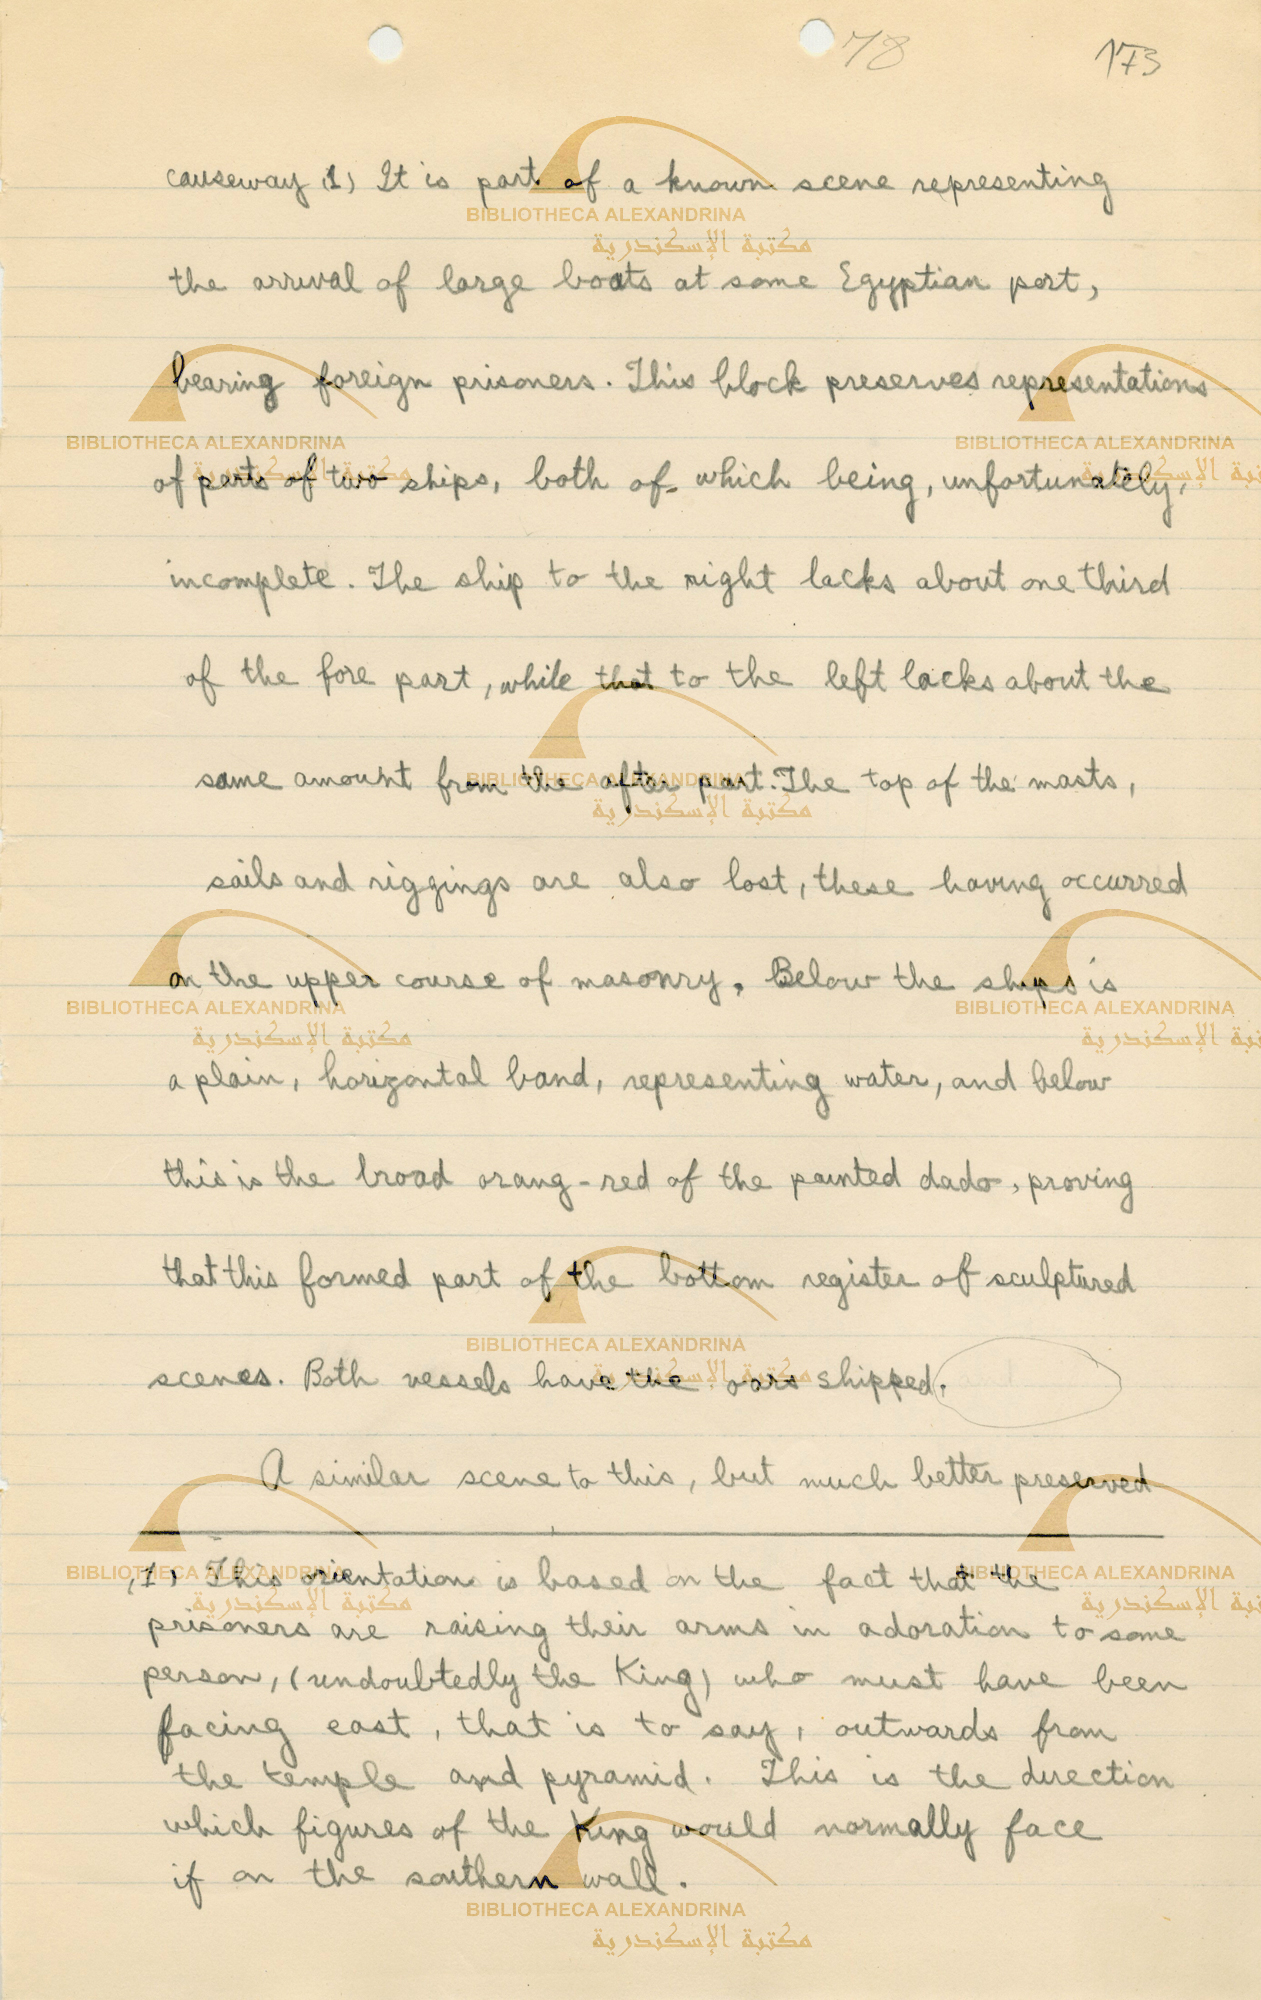 78 173
causeway (1) It is part of a known scene representing
the arrival of large boats at some Egyptian port,
bearing foreign prisoners. This block preserves representations
of parts of two ships, both of which being, unfortunately,
incomplete. The ship to the right lacks about one third
of the fore part, while that to the left lacks about the
same amount from the after part. The top of the masts,
sails and riggings are also lost, these having occurred
on the upper course of masonry. Below the ships is
a plain, horizontal band, representing water, and below
this is the broad orang-red of the painted dado, proving
that this formed part of the bottom register of sculptured
scenes. Both vessels have the oars shipped.
A similar scene to this, but much better preserved
(1) This orientation is based on the fact that the
prisoners are raising their arms in adoration to some
person, (undoubtedly the King) who must have been
facing east, that is to say, outwards from
the temple and pyramid. This is the direction
which figures of the King would normally face
if on the southern wall.
BIBLIOTHECA ALEXANDRINA
مكتبة الإسكندرية